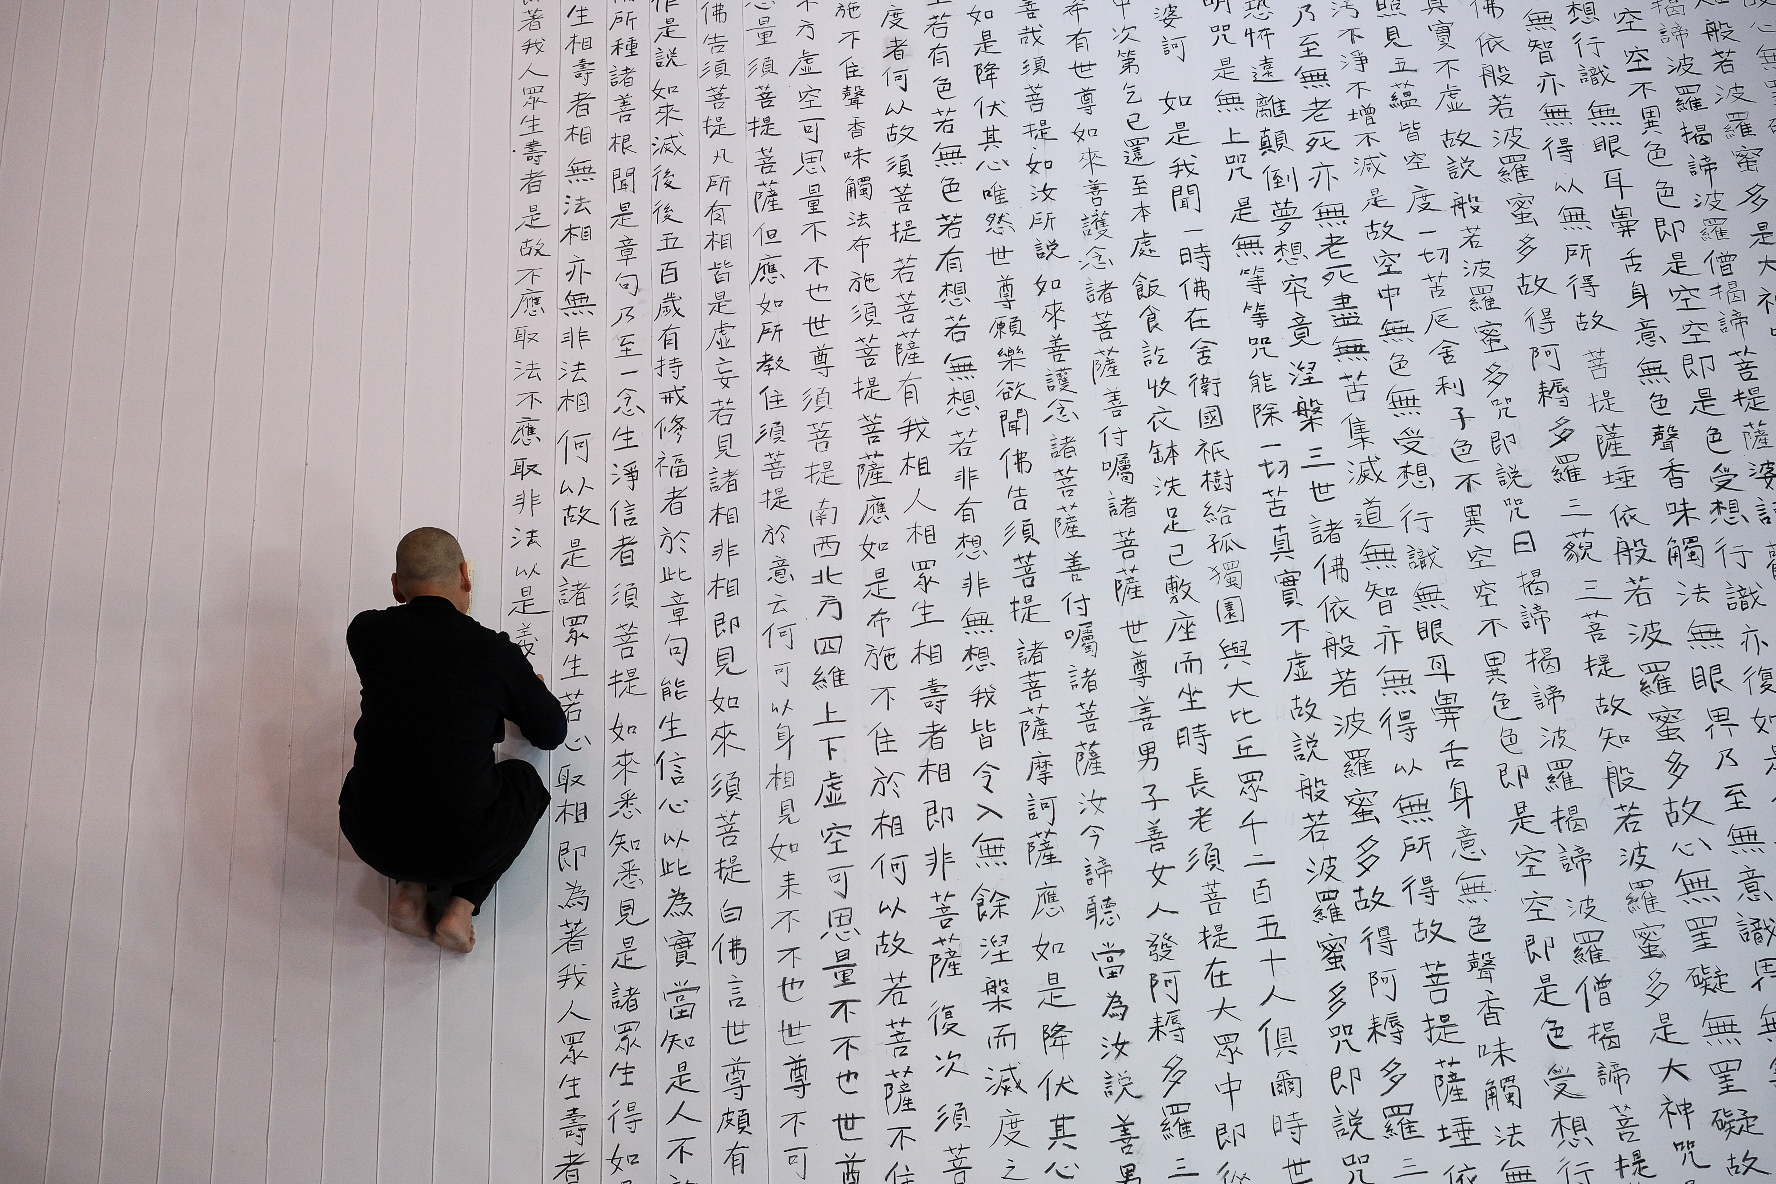 故心無罣
般若波羅蜜多是大神
揭諦波羅揭諦波羅僧揭諦菩提薩婆訶
空空不異色色即是空空即是色受想行識亦復如是
想行識無眼耳鼻舌身意無色聲香味觸法無眼界乃至無意識界無
無智亦無得以無所得故菩提薩埵依般若波羅蜜多故心無罣礙無罣礙故
佛依般若波羅蜜多故得阿耨多羅三藐三菩提故知般若波羅蜜多是大神咒
真實不虛故說般若波羅蜜多咒即說咒曰揭諦揭諦波羅揭諦波羅僧揭諦菩提
照見五蘊皆空度一切苦厄舍利子色不異空空不異色色即是空空即是色受想行
污不淨不增不減是故空中無色無受想行識無眼耳鼻舌身意無色聲香味觸法無
乃至無老死亦無老死盡無苦集滅道無智亦無得以無所得故菩提薩埵依
恐怖遠離顛倒夢想究竟涅槃三世諸佛依般若波羅蜜多故得阿耨多羅三
明咒是無上咒是無等等咒能除一切苦真實不虛故說般若波羅蜜多咒即說咒
婆訶 如是我聞一時佛在舍衛國祇樹給孤獨園與大比丘眾千二百五十人俱爾時世
中次第乞已還至本處飯食訖收衣缽洗足已敷座而坐時長老須菩提在大眾中即從
希有世尊如來善護念諸菩薩善付囑諸菩薩世尊善男子善女人發阿耨多羅三
善哉須菩提如汝所說如來善護念諸菩薩善付囑諸菩薩汝今諦聽當為汝說善男
如是降伏其心唯然世尊願樂欲聞佛告須菩提諸菩薩摩訶薩應如是降伏其心
若有色若無色若有想若無想若非有想非無想我皆令入無餘涅槃而滅度之
度者何以故須菩提若菩薩有我相人相眾生相壽者相即非菩薩復次須菩
施不住聲香味觸法布施須菩提菩薩應如是布施不住於相何以故若菩薩不住
方虛空可思量不不也世尊須菩提南西北方四維上下虛空可思量不不也世尊
量須菩提菩薩但應如所教住須菩提於意云何可以身相見如来不不也世尊不可
佛告須菩提凡所有相皆是虛妄若見諸相非相即見如來須菩提白佛言世尊頗有
作是說如來滅後後五百歲有持戒修福者於此章句能生信心以此為實當知是人不
所種諸善根聞是章句乃至一念生淨信者須菩提如來悉知悉見是諸眾生得如
生相壽者相無法相亦無非法相何以故是諸眾生若心取相即為著我人眾生壽者
著我人眾生壽者是故不應取法不應取非法以是義